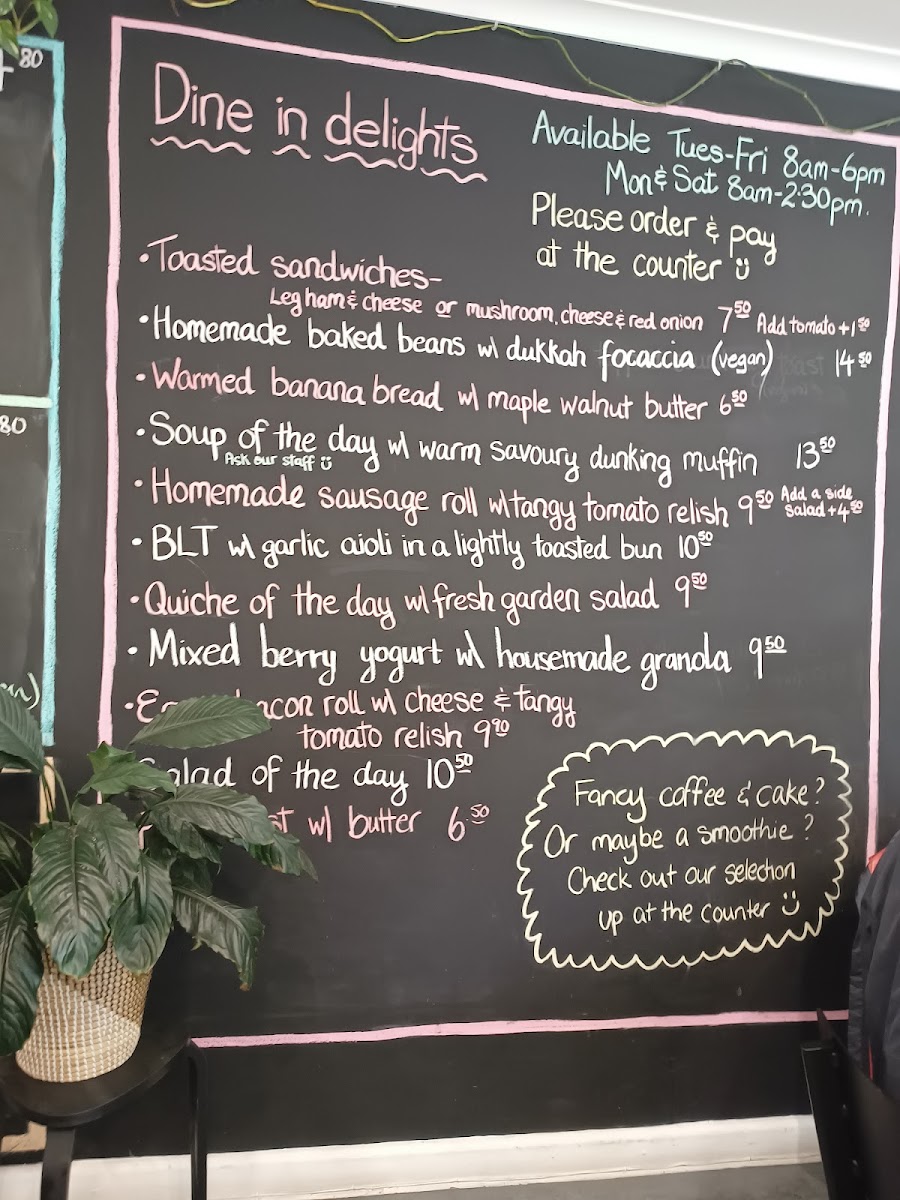 80
Dine in delights
Available Tues-Fri 8am-6pm
Mon & Sat 8am-2:30pm.
Please order & pay
at the counter
•Toasted sandwiches-
Leg ham & cheese or mushroom, cheese & red onion 7.50 Add tomato +1.50
•Homemade baked beans w/ dukkah focaccia (vegan) 14.50
•Warmed banana bread w/ maple walnut butter 6.50
•Soup of the day w/ warm savoury dunking muffin 13.50
Ask our staff
•Homemade sausage roll w/ tangy tomato relish 9.50 Add a side
salad +4.50
•BLT w/ garlic aioli in a lightly toasted bun 10.50
•Quiche of the day w/ fresh garden salad 9.50
•Mixed berry yogurt w/ housemade granola 9.50
roll w/ cheese & tangy
tomato relish 9.90
Salad of the day 10.50
w/ butter 6.50
Fancy coffee & cake?
Or maybe a smoothie?
Check out our selection
up at the counter
80